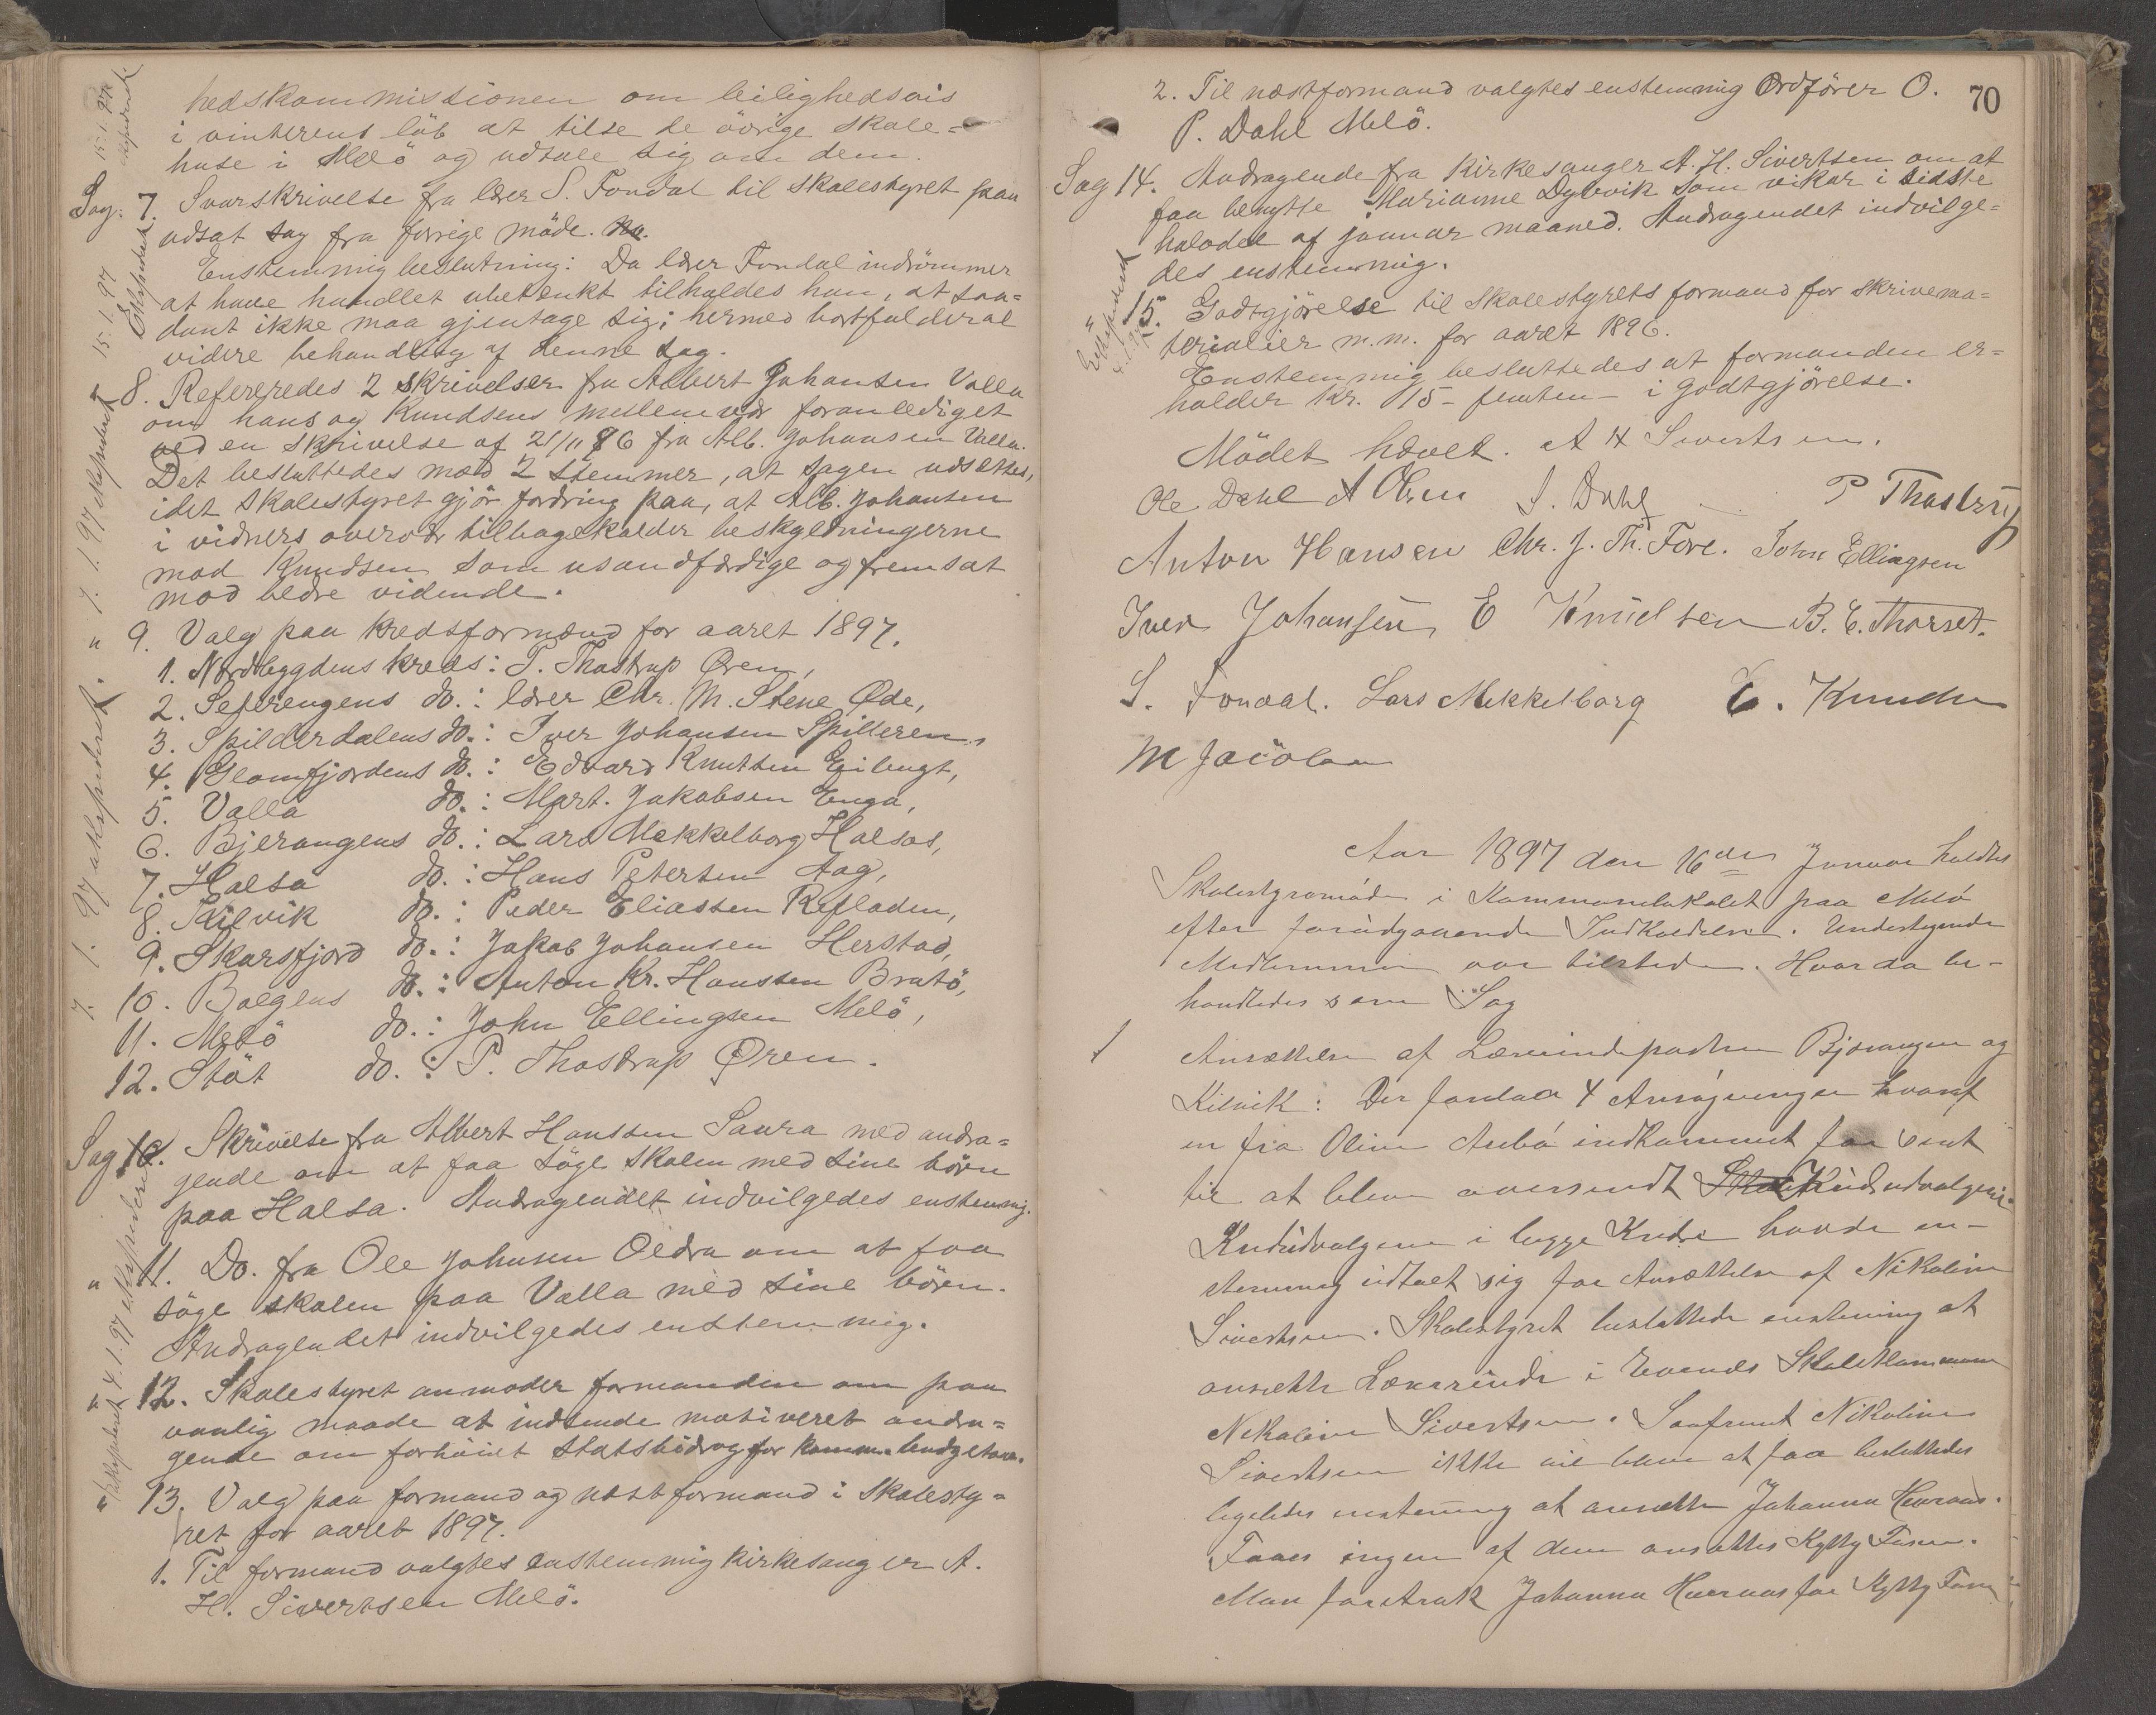 hedskommissionen om leilighedsvis
i vinterens löb at tilse de övrige skole=
huse i Melö og udtale sig om dem.
Sag: 7. Svarskrivelse fra lærer S. Fondal til skolestyret paa
udsat sag fra forrige möde.
Enstemmig beslutning: Da lærer Fondal indrömmer
at have handlet ubetænkt tilholdes han, at saa=
dant ikke maa gjentage sig; hermed bortfalder al
videre behandling af denne sag.
8. Refereredes 2 skrivelser fra Albert Johansen Valla
om hans og Knudsens mellemvær foranlediget
ved en skrivelse af 21/11 86 fra Alb. Johansen Valla.
Det besluttedes med 2 stemmer, at sagen udsættes,
idet skolestyret gjör fordring paa, at Alb. Johansen
i vidners overvær tilbagekalder beskyldningerne
mod Knudsen som usandfærdige og fremsat
mod bedre vidende.
" 9. Valg paa kredsformænd for aaret 1897.
1. Nordbygdens kreds: P. Thastrup Ören,
2. Selfrengens do.: lærer Chr. M. Stene Øde,
3. Spilderdalens do.: Iver Johansen Spilderen,
4. Glomfjordens do.: Edvard Knutsen Eilengt,
5. Valla do.: Mart. Jakobsen Enga,
6. Bjerangens do.: Lars Mekkelborg Halsos,
7. Halsa do.: Hans Petersen Aag,
8. Kilvik do.: Peder Eliassen Refladen,
9. Skarsfjord do.: Jakob Johansen Herstad,
10. Bolgens do.: Anton Kr. Hanssen Bratö,
11. Melö do.: John Ellingsen Melö,
12. Stöt do.: P. Thastrup Ören.
Sag 10. Skrivelse fra Albert Hanssen Saura med andra=
gende om at faa söge skolen med sine börn
paa Halsa. Andragendet indvilgedes enstemmig.
" 11. Do. fra Ole Johnsen Oldra om at faa
söge skolen paa Valla med sine börn.
Andragendet indvilgedes enstemmig.
" 12. Skolestyret anmoder formanden om paa
vanlig maade at indsende motiveret andra=
gende om forhöiet statsbidrag for komm. budgettern.
" 13. Valg paa formand og næstformand i skolesty=
ret for aaret 1897.
1. Til formand valgtes enstemmig kirkesanger A.
H. Sivertsen Melö.
15. 1. 97 Ekspederet
15. 1. 97 Ekspederet
7. 1. 97 ekspederet
7. 1. 97 ekspederet.
Ekspederet 4. 1. 97 ekspederet
70
2. Til næstformand valgtes enstemmig Ordförer O.
P. Dahl Melö.
Sag 14. Andragende fra kirkesanger A. H. Sivertsen om at
faa benytte Marianne Dybvik som vikar i sidste
halvdel af januar maaned. Andragendet indvilge=
des enstemmig.
" 15. Godtgjörelse til skolestyrets formand for skrivema=
terialier m.m. for aaret 1896.
Enstemmig besluttedes at formanden er=
holder kr. 15 - femten - i godtgjörelse.
Ekspederet
Mödet hævet. A H Sivertsen.
Ole Dahl A Olsen S. Dahl P Thastrup
Anton Hansen Chr. J. Th. Fore. John Ellingsen
Iver Johansen E Knudsen B. E. Thorset.
S. Fondal. Lars Mekkelborg E. Knudsen
M Jacobsen
Aar 1897 den 16de Januar holdtes
Skolestyremöde i Kommunelokalet paa Melö
efter forudgaaende Indkaldelse. Undertegnede
Medlemmer var tilstede. Hvor da be-
handledes som Sag
1 Ansættelse af Lærerindeposten Bjerangen og
Kilvik: Der forelaa 4 Ansögninger hvoraf
en fra Oline Anbö indkommet for sent
til at blive oversendt Kredsudvalgene.
Kredsudvalgene i begge Kredse havde en-
stemmig udtalt sig for Ansættelse af Nikoline
Sivertsen. Skolestyret besluttede enstemmig at
ansætte Lærerinde i Skole
Nikoline Sivertsen. Saafremt Nikoline
Sivertsen ikke vil være at faa besluttedes
ligeledes enstemmig at ansætte Johanna Hveraas.
Faaes ingen af dem ansættes Kytty Fasen.
Man foretrak Johanna Hveraas for Kytty Fasen